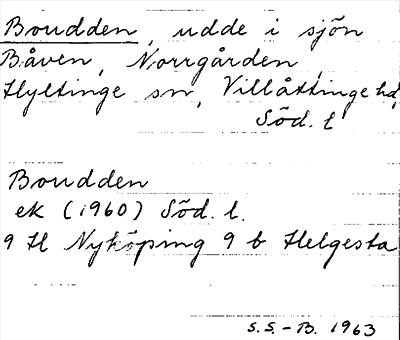 Boudden, udde i sjön
Båven, Norrgården,
Hyltinge sn, Villåttinge hd,
Söd. l.
Boudden
ek (1960) Söd. l.
9 H Nyköping 9 b Helgesta
S.S.-B. 1963